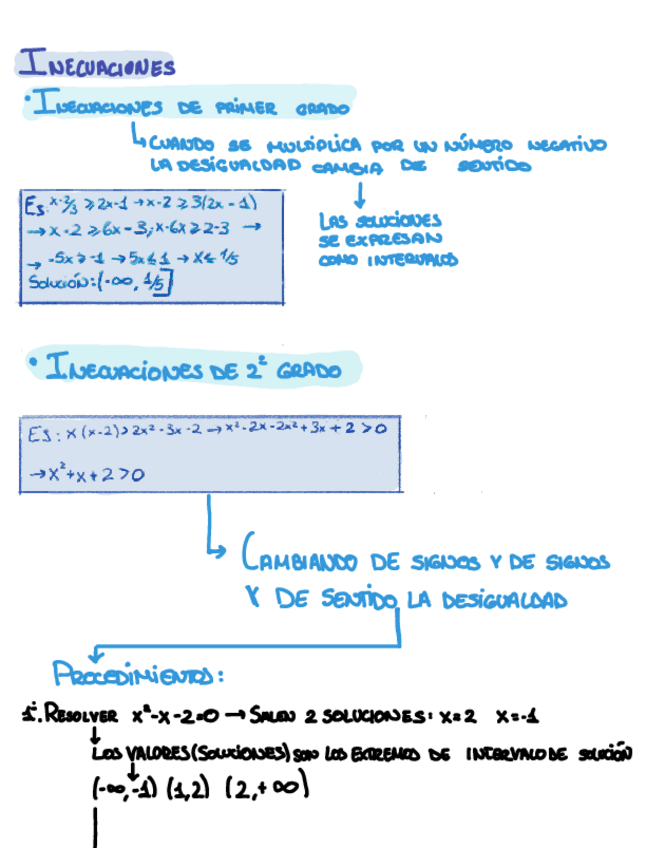 INECUACIONES
• INECUACIONES DE PRIMER GRADO
↳ CUANDO SE MULTIPLICA POR UN NÚMERO NEGATIVO
LA DESIGUALDAD CAMBIA DE SENTIDO
Es: x-2/3 ⩾ 2x-1 → x-2 ⩾ 3(2x-1)
→ x-2 ⩾ 6x-3; x-6x ⩾ 2-3 →
→ -5x ⩾ -1 → 5x ⩽ 1 → x ⩽ 1/5
Solución: (-∞, 1/5]
LAS SOLUCIONES
SE EXPRESAN
COMO INTERVALOS
• INECUACIONES DE 2º GRADO
Es: x(x-2) > 2x²-3x-2 → x²-2x-2x²+3x+2 > 0
→ x²+x+2 > 0
CAMBIANDO DE SIGNOS Y DE SIGNOS
Y DE SENTIDO LA DESIGUALDAD
PROCEDIMIENTO:
1º. RESOLVER x²-x-2=0 → SALEN 2 SOLUCIONES: x=2 x=-1
LOS VALORES (SOLUCIONES) SON LOS EXTREMOS DE INTERVALO DE SOLUCIÓN
(-∞,-1) (1,2) (2,+∞)